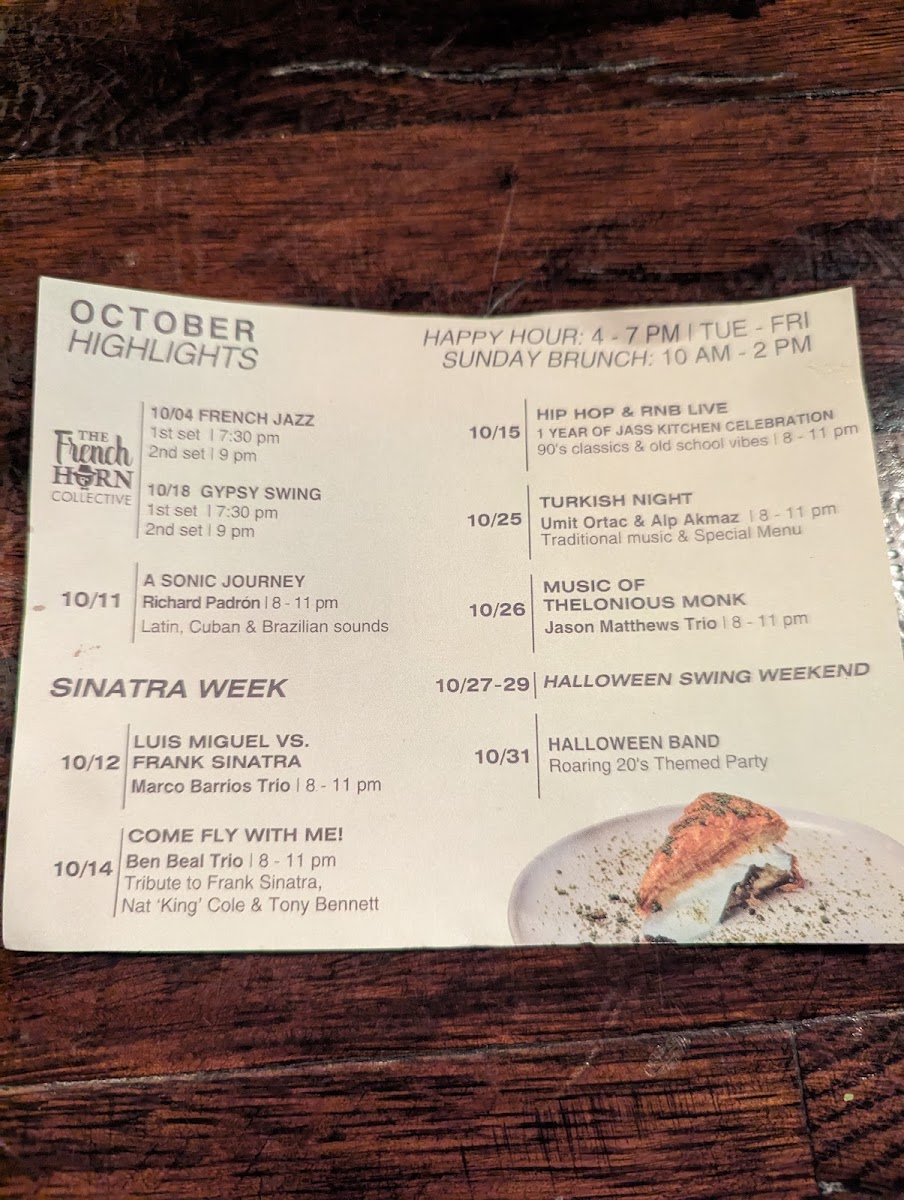 OCTOBER
HIGHLIGHTS
HAPPY HOUR: 4 - 7 PM | TUE - FRI
SUNDAY BRUNCH: 10 AM - 2 PM
THE
French
HORN
COLLECTIVE
10/04 FRENCH JAZZ
1st set | 7:30 pm
2nd set | 9 pm
10/18 GYPSY SWING
1st set | 7:30 pm
2nd set | 9 pm
10/11
A SONIC JOURNEY
Richard Padrón | 8 - 11 pm
Latin, Cuban & Brazilian sounds
SINATRA WEEK
10/12
LUIS MIGUEL VS.
FRANK SINATRA
Marco Barrios Trio | 8 - 11 pm
10/14
COME FLY WITH ME!
Ben Beal Trio | 8 - 11 pm
Tribute to Frank Sinatra,
Nat 'King' Cole & Tony Bennett
10/15
HIP HOP & RNB LIVE
1 YEAR OF JASS KITCHEN CELEBRATION
90's classics & old school vibes | 8 - 11 pm
10/25
TURKISH NIGHT
Umit Ortac & Alp Akmaz | 8 - 11 pm
Traditional music & Special Menu
10/26
MUSIC OF
THELONIOUS MONK
Jason Matthews Trio | 8 - 11 pm
10/27-29 | HALLOWEEN SWING WEEKEND
10/31
HALLOWEEN BAND
Roaring 20's Themed Party